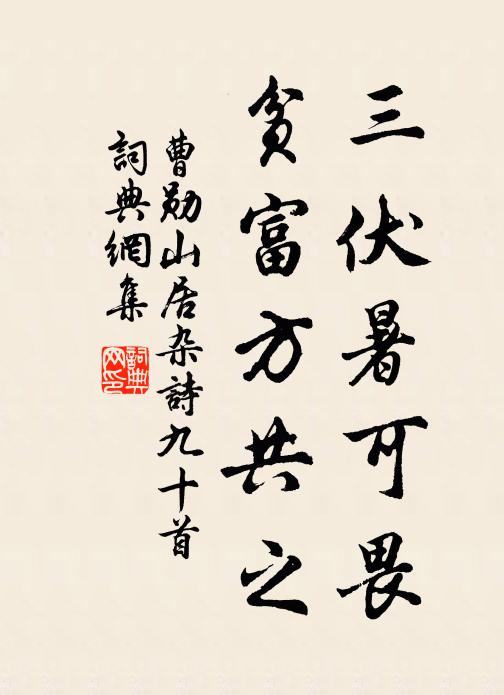 三伏暑可畏
貧富方共之
曹勛山居杂詩九十首
詞典網集
詞典网印